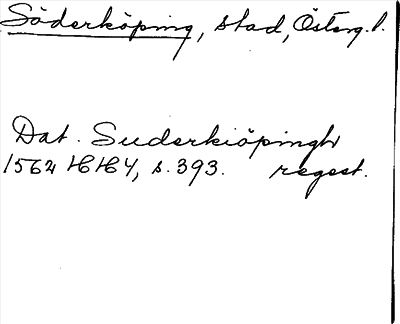 Söderköping, stad, Österg. l.
Dat. Suderkiöpingh
1562 HH4, s. 393. regest.